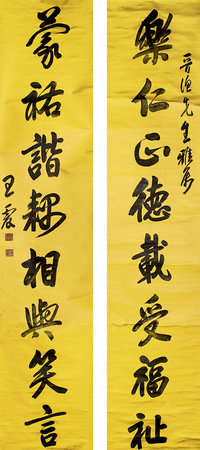 晋渔先生雅属
樂仁正德載受福祉
蒙祐諧耦相與笑言
王震